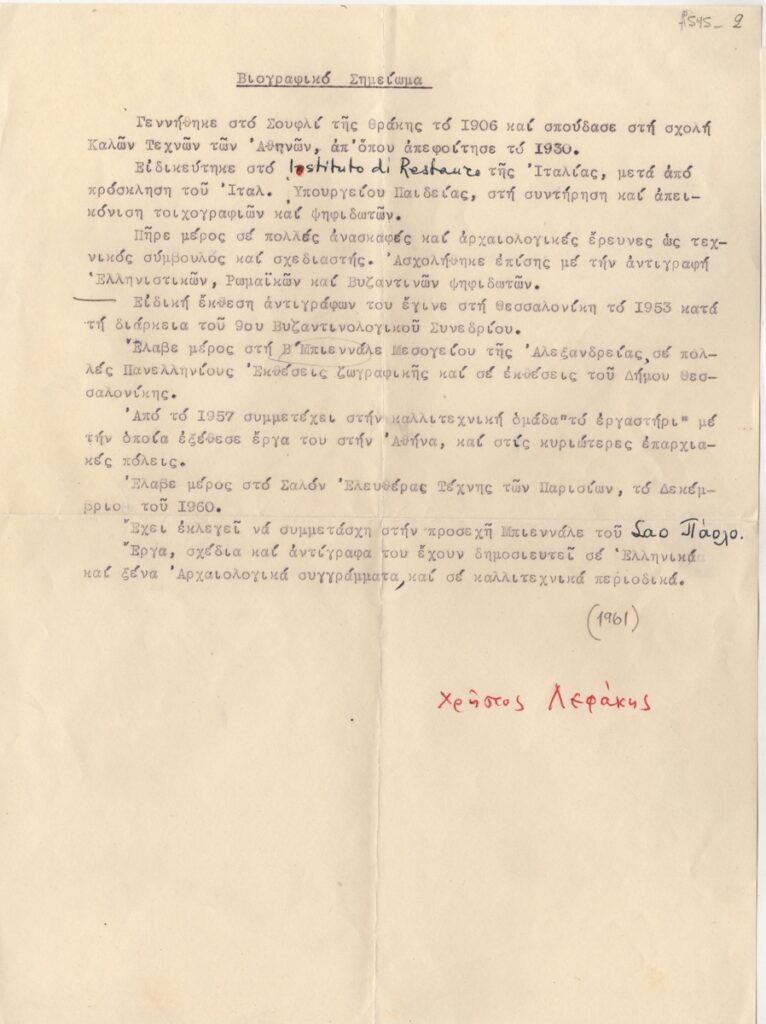 β545_ 2
Βιογραφικό Σημείωμα
Γεννήθηκε στό Σουφλί τῆς Θράκης τό 1906 καί σπούδασε στή σχολή
Καλῶν Τεχνῶν τῶν Ἀθηνῶν, ἀπ'ὅπου ἀπεφοίτησε τό 1930.
Εἰδικεύτηκε στό Instituto di Restauro τῆς Ἰταλίας, μετά ἀπό
πρόσκληση τοῦ Ἰταλ. Ὑπουργείου Παιδείας, στή συντήρηση καί ἀπει-
κόνιση τοιχογραφιῶν καί ψηφιδωτῶν.
Πῆρε μέρος σέ πολλές ἀνασκαφές καί ἀρχαιολογικές ἔρευνες ὡς τεχ-
νικός σύμβουλος καί σχεδιαστής. Ἀσχολήθηκε ἐπίσης μέ τήν ἀντιγραφή
Ἑλληνιστικῶν, Ρωμαϊκῶν καί Βυζαντινῶν ψηφιδωτῶν.
Εἰδική ἔκθεση ἀντιγράφων του ἔγινε στή Θεσσαλονίκη τό 1953 κατά
τή διάρκεια τοῦ 9ου Βυζαντινολογικοῦ Συνεδρίου.
Ἔλαβε μέρος στή Β΄Μπιεννάλε Μεσογείου τῆς Ἀλεξανδρείας, σέ πολ-
λές Πανελληνίους Ἐκθέσεις ζωγραφικῆς καί σέ ἐκθέσεις τοῦ Δήμου Θεσ-
σαλονίκης.
Ἀπό τό 1957 συμμετέχει στήν καλλιτεχνική ὁμάδα"τό ἐργαστήρι" μέ
τήν ὁποία ἐξέθεσε ἔργα του στήν Ἀθήνα, καί στίς κυριώτερες ἐπαρχια-
κές πόλεις.
Ἔλαβε μέρος στό Σαλόν Ἐλευθέρας Τέχνης τῶν Παρισίων, τό Δεκέμ-
βριο τοῦ 1960.
Ἔχει ἐκλεγεῖ νά συμμετάσχη στήν προσεχῆ Μπιεννάλε τοῦ Sao Πάολο.
Ἔργα, σχέδια καί ἀντίγραφα του ἔχουν δημοσιευτεῖ σέ Ἑλληνικά
καί ξένα Ἀρχαιολογικά συγγράμματα, καί σέ καλλιτεχνικά περιοδικά.
(1961)
Χρῆστος Λεφάκης